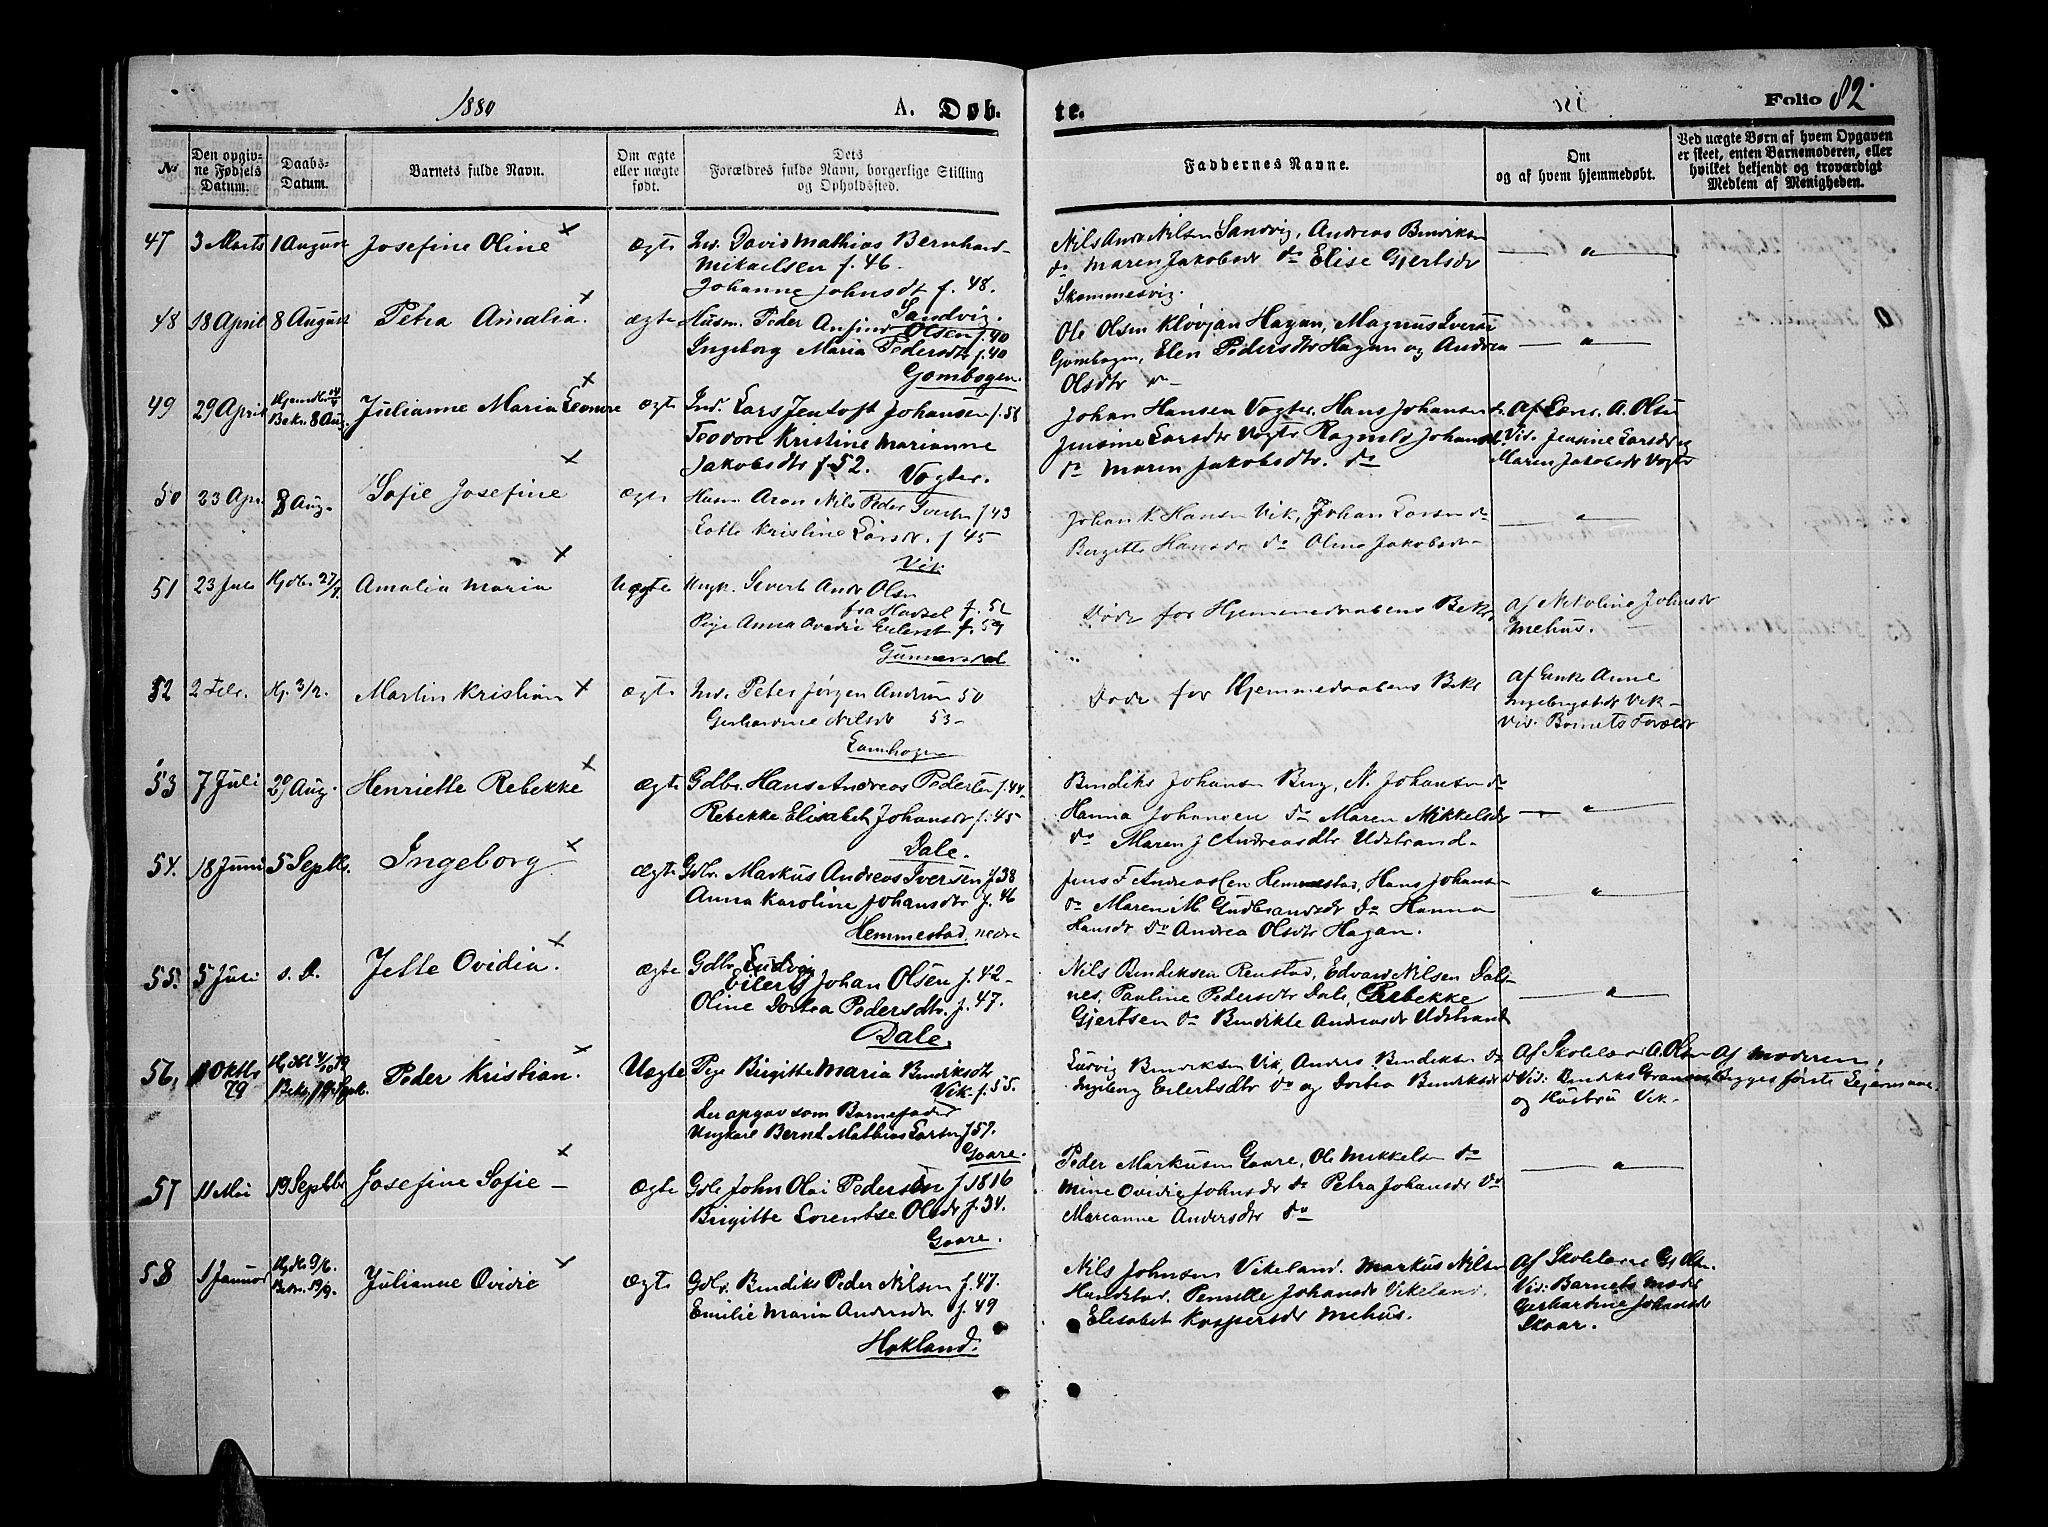 1880
A. Døb-
te.
Folio 82.
No
Den opgiv-
ne Fødsels
Datum.
Daabs-
Datum.
Barnets fulde Navn.
Om ægte
eller uægte
født.
Dets
Forældres fulde Navn, borgerlige Stilling
og Opholdssted.
Faddernes Navne.
Om
og af hvem hjemmedøbt.
Ved uægte Børn af hvem Opgaven
er skeet, enten Barnemoderen, eller
hvilket bekjendt og troværdigt
Medlem af Menigheden.
47 3 Marts 1 August Josefine Oline ægte Ind. David Mathias Bernhard
Mikaelsen f. 46.
Johanne Johnsdt f. 48.
Sandvig.
Nils Andr Nilsen Sandvig, Andreas Bendiksen
do Maren Jakobsdr do Elise Gjertsdr
Skommesvig.
48 18 April 8 August Petra Amalia. ægte Husm. Peder Anfind Olsen f. 40
Ingeborg Maria Pedersdtr f. 40
Gombogen.
Ole Olsen Kløvjan Hagan, Magnus Iversen
Gombogen, Elen Pedersdtr Hagan og Andrea
Olsdtr do
49 29 April Hjemdb. Bekr. 8 Aug. Julianne Maria Leonore ægte Ind. Lars Jentoft Johansen f. 56
Teodore Kristine Marianne
Jakobsdtr f. 52. Vogter.
Johan Hansen Vogter, Hans Johansen do
Jensine Larsdtr Vogter Ragnild Johansdt.
do Maren Jakobsdtr. do
Af Lær. A. Olsen
Vid. Jensine Larsdr og
Maren Jakobsdr Vogter
50 23 Apr. 8 Aug. Sofie Josefine ægte Husm Aron Nils Peder Ivers f 43
Lotte Kristine Larsdr. f 45
Vik
Johan K. Hansen Vik, Johan Larsen do
Bergitte Hansdr do Olina Jakobsdr
51 23 Juli Hjdb. 27/7. Amalia Maria Uægte Ungk. Severt Andr Olsen
fra Hadsel f. 52
Pige Anna Ovedie Eilerst f. 59
Gunnersdal
Døde før Hjemmedaabens Bekr.
Af Nikoline Johnsdr
Mehus.
52 2 Febr. Hj. 3/2. Martin Kristian ægte Ind. Peter Jørgen Andrsen 50
Gerhardine Nilsdr 53
Lamhogen
Døde før Hjemmedaabens Bekr
Af Enke Anne
Ingebrigtsdr Vik
Vid. Barnets Foreldr
53 7 Juli 29 Aug. Henriette Rebekke Ægte Gdbr. Hans Andreas Pedersen f. 44
Rebekke Elisabet Johansdr f. 45
Dale.
Bendiks Johansen Berg, N. Johansen do
Hanna Johansen do Maren Mikkelsdr
do Maren J Andreasdtr Udstrand.
54. 18 Juni 5 Septbr. Ingeborg ægte Gdbr. Markus Andreas Iversen f 38
Anna Karoline Johansdtr f. 46
Hemmestad nedre
Jens F Andreassen Hemmestad, Hans Johans
do Maren M. Gudbrandsdr do Hanna
Hansdr do Andrea Olsdtr Hagan.
55. 5 Juli s. D. Jette Ovidia. ægte Gdbr. Ludvig
Eilert Johan Olsen f. 42
Oline Dortea Pedersdtr. f. 47.
Dale.
Nils Bendiksen Renstad, Edvard Nilsen Dals-
nes, Pauline Pedersdtr Dale, Rebekke
Gjertsen do Bendikte Andreasdr Udstrand
56, Oktbr 79 Hjdbt 4/10 79 Bekr. 19 Septb. Peder Kristian. Uægte Pige Birgitte Maria Bendiksdt
Vik f. 55.
der opgav som Barnefader
Ungkarl Bernt Mathias Larsen f 57.
Gaare.
Ludvig Bendiksen Vik, Anders Bendiksen do
Ingeborg Eilertsdtr do og Dortea Bendiksdr do
Af Skolelærer A. Olsen
Vid: Bendiks
og Hustru Vik
Af Moderen,
Begges første Leiermaal.
57 11 Mai 19 Septbr Josefine Sofie ægte Gdbr John Olai Pedersen f 1816
Birgitte Lorentse Olsdr f. 34.
Gaare.
Peder Markusen Gaare, Ole Mikkelsen do
Mine Ovidie Johnsdr do Petra Johansdr do
Marianne Andersdtr do
58 1 Januar Hjdb. 9/6. Bekr. 19/9. Julianne Ovidie ægte Gdbr. Bendiks Peder Nilsen f. 47.
Emilie Maria Andersdr f. 49
Hokland.
Nils Johnsen Vikeland. Markus Nilsen
Hundstad. Pernille Johansdr Vikeland.
Elisabet Kaspersdr Mehus.
Af Skolelærer G Olsen.
Vid: Barnets Moder
Gerhardine Johansdr
Skaar.